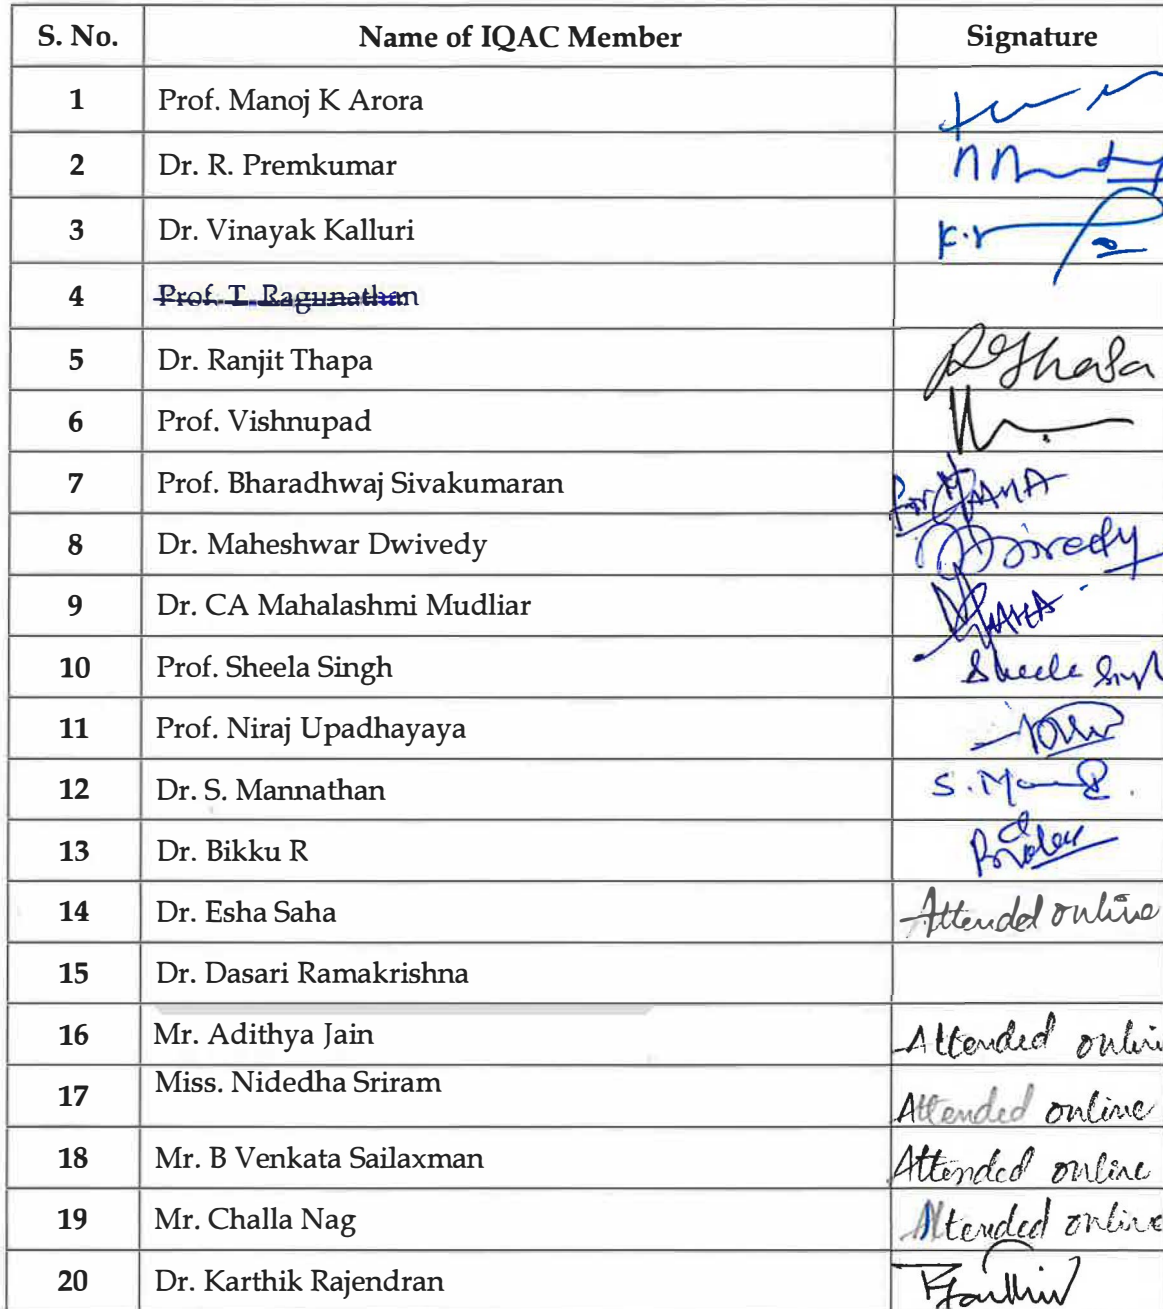 S. No. Name of IQAC Member Signature
1 Prof. Manoj K Arora
2 Dr. R. Premkumar
3 Dr. Vinayak Kalluri K.V
4 Prof. T. Ragunathan
5 Dr. Ranjit Thapa RThapa
6 Prof. Vishnupad
7 Prof. Bharadhwaj Sivakumaran for
8 Dr. Maheshwar Dwivedy Dwivedy
9 Dr. CA Mahalashmi Mudliar
10 Prof. Sheela Singh Sheela Singh
11 Prof. Niraj Upadhayaya
12 Dr. S. Mannathan S.
13 Dr. Bikku R
14 Dr. Esha Saha Attended online
15 Dr. Dasari Ramakrishna
16 Mr. Adithya Jain Attended onlin
17 Miss. Nidedha Sriram Attended online
18 Mr. B Venkata Sailaxman Attended online
19 Mr. Challa Nag Attended online
20 Dr. Karthik Rajendran